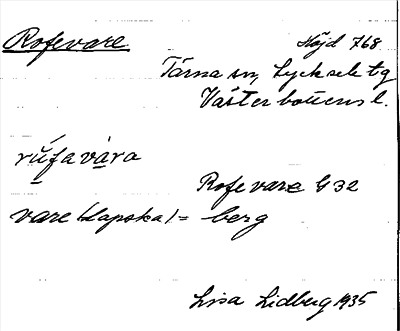 Rofevare Höjd 768
Tärna sn, Lycksele tg
Västerbottens l.
rŭfavàra
Rofevare G 32
vare (lapska) = berg
Lisa Lidberg 1935